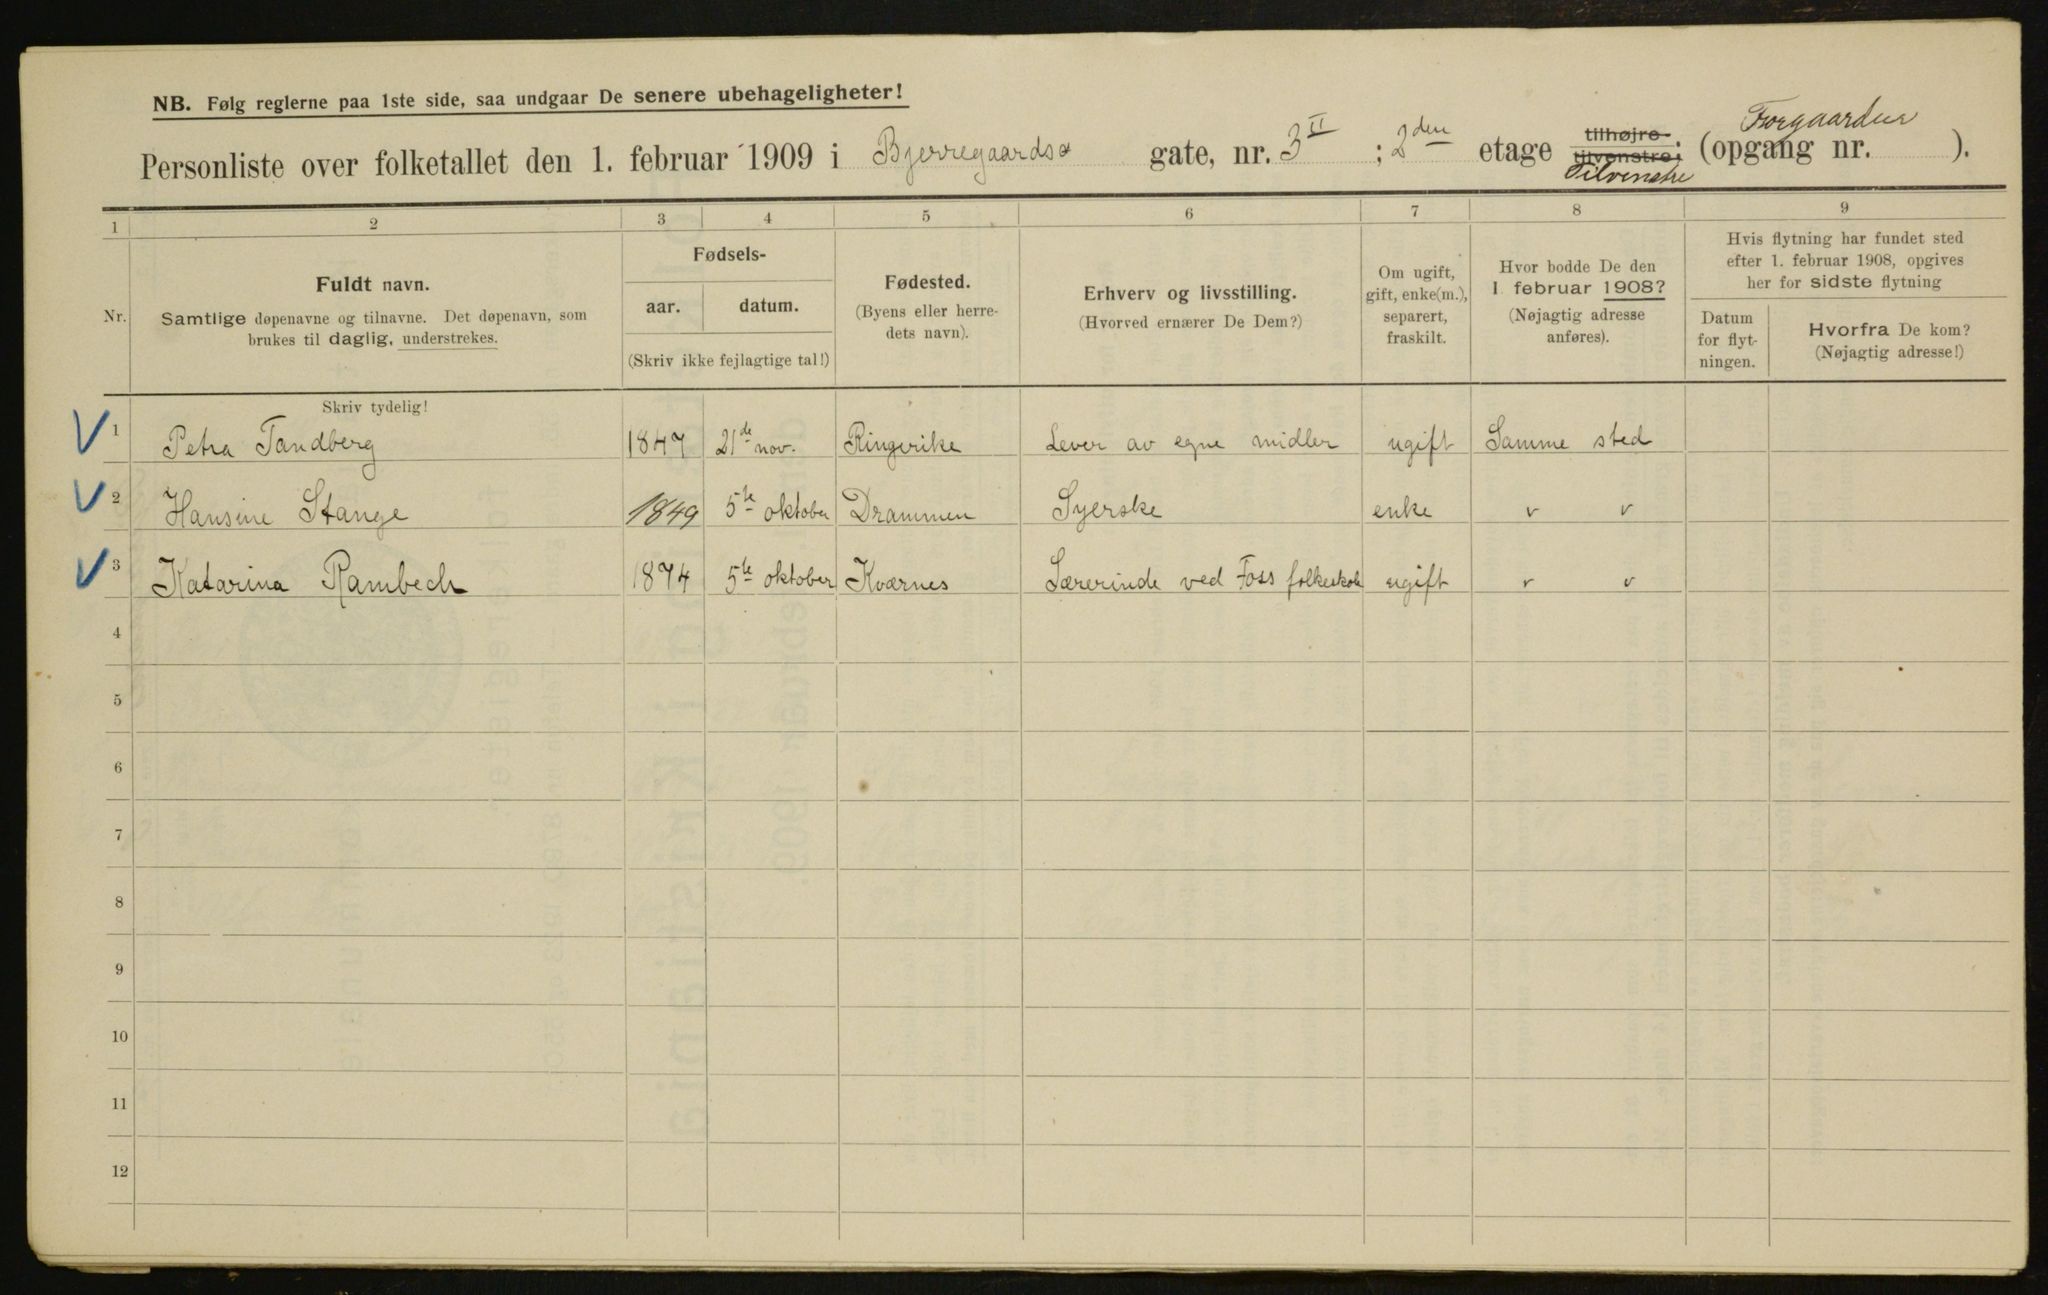 NB. Følg reglerne paa 1ste side, saa undgaar De senere ubehageligheter!
Forgaarden
Personliste over folketallet den 1. februar 1909 i Bjerregaards gate, nr. 3 II ; 2den etage tilhøjre. tilvenstre; (opgang nr. ).
Tilvenstre
1 2 3 4 5 6 7 8 9
Nr.
Fuldt navn.
Samtlige døpenavne og tilnavne. Det døpenavn, som
brukes til daglig, understrekes.
Skriv tydelig!
Fødsels-
aar. datum.
(Skriv ikke fejlagtige tal!)
Fødested.
(Byens eller herre-
dets navn).
Erhverv og livsstilling.
(Hvorved ernærer De Dem?)
Om ugift,
gift, enke(m.),
separert,
fraskilt.
Hvor bodde De den
1 februar 1908?
(Nøjagtig adresse
anføres).
Hvis flytning har fundet sted
efter 1. februar 1908, opgives
her for sidste flytning
Datum
for flyt-
ningen.
Hvorfra De kom?
(Nøjagtig adresse!)
V 1 Petra Tandberg 1847 21de nov. Ringerike Lever av egne midler ugift Samme sted
V 2 Hansine Stange 1849 5te oktober Drammen Syerske enke v v
V 3 Katarina Rambech 1874 5te oktober Kværnes Lærerinde ved Foss folkeskole ugift v v
4
5
6
7
8
9
10
11
12